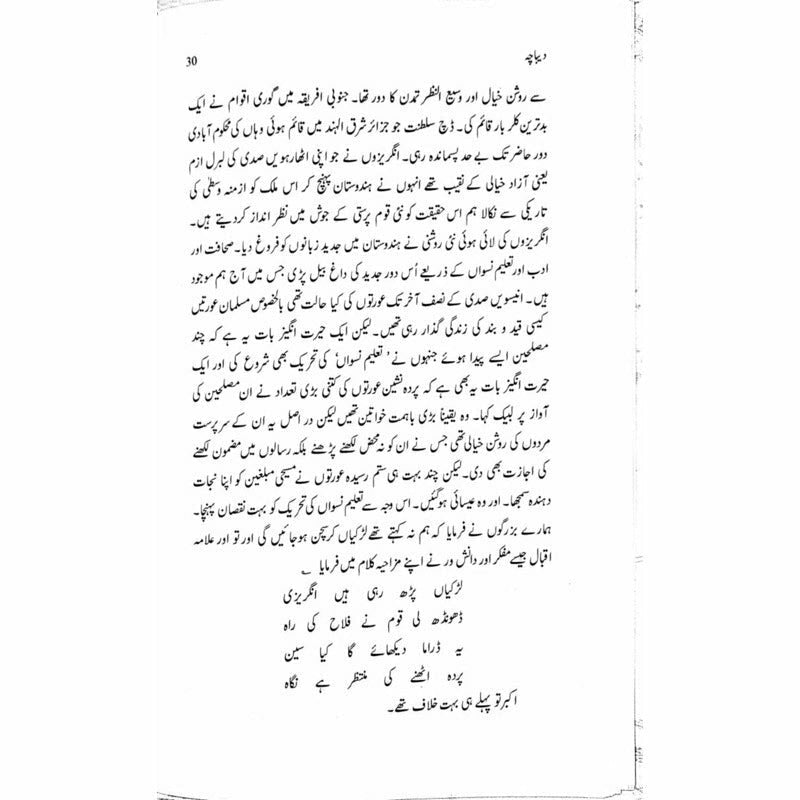 دیباچہ
30
سے روشن خیال اور وسیع النظر تمدن کا دور تھا۔ جنوبی افریقہ میں گوری اقوام نے ایک
بدترین کلر بار قائم کی۔ ڈچ سلطنت جو جزائر شرق الہند میں قائم ہوئی وہاں کی محکوم آبادی
دور حاضر تک بے حد پسماندہ رہی۔ انگریزوں نے جو اپنی اٹھارہویں صدی کی لبرل ازم
یعنی آزاد خیالی کے نقیب تھے انہوں نے ہندوستان پہنچ کر اس ملک کو ازمنہ وسطٰی کی
تاریکی سے نکالا ہم اس حقیقت کو نئی قوم پرستی کے جوش میں نظر انداز کر دیتے ہیں۔
انگریزوں کی لائی ہوئی نئی روشنی نے ہندوستان میں جدید زبانوں کو فروغ دیا۔ صحافت اور
ادب اور تعلیم نسواں کے ذریعے اُس دور جدید کی داغ بیل پڑی جس میں آج ہم موجود
ہیں۔ انیسویں صدی کے نصف آخر تک عورتوں کی کیا حالت تھی بالخصوص مسلمان عورتیں
کیسی قید و بند کی زندگی گذار رہی تھیں۔ لیکن ایک حیرت انگیز بات یہ ہے کہ چند
مصلحین ایسے پیدا ہوئے جنہوں نے 'تعلیم نسواں' کی تحریک بھی شروع کی اور ایک
حیرت انگیز بات یہ بھی ہے کہ پردہ نشین عورتوں کی کتنی بڑی تعداد نے ان مصلحین کی
آواز پر لبیک کہا۔ وہ یقیناً بڑی باہمت خواتین تھیں لیکن در اصل یہ ان کے سرپرست
مردوں کی روشن خیالی تھی جس نے ان کو نہ محض لکھنے پڑھنے بلکہ رسالوں میں مضمون لکھنے
کی اجازت بھی دی۔ لیکن چند بہت ہی ستم رسیدہ عورتوں نے مسیحی مبلغین کو اپنا نجات
دہندہ سمجھا۔ اور وہ عیسائی ہو گئیں۔ اس وجہ سے تعلیم نسواں کی تحریک کو بہت نقصان پہنچا۔
ہمارے بزرگوں نے فرمایا کہ ہم نہ کہتے تھے لڑکیاں کرسچن ہو جائیں گی اور تو اور علامہ
اقبال جیسے مفکر اور دانش ور نے اپنے مزاحیہ کلام میں فرمایا ؎
لڑکیاں پڑھ رہی ہیں انگریزی
ڈھونڈھ لی قوم نے فلاح کی راہ
یہ ڈراما دیکھائے گا کیا سین
پردہ اٹھنے کی منتظر ہے نگاہ
اکبر تو پہلے ہی بہت خلاف تھے۔